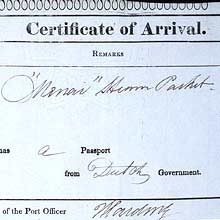 Certificate of Arrival.
REMARKS
"Menai" Steam Packet
has a Passport
from Dutch Government.
of the Port Officer